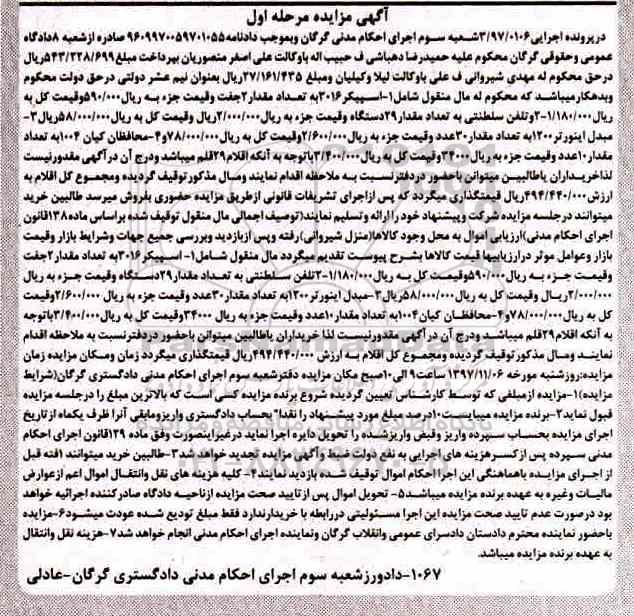 آگهی مزایده مرحله اول
درپرونده اجرایی۳/۹۷/۰۱۰۶شعبه سوم اجرای احکام مدنی گرگان وبموجب دادنامه۹۶۰۹۹۷۰۰۵۹۷۰۱۰۵۵ صادره ازشعبه ۸دادگاه
عمومی وحقوقی گرگان محکوم علیه حمیدرضا دهباشی ف حبیب اله باوکالت علی اصغر منصوریان بپرداخت مبلغ۵۴۳/۲۲۸/۶۹۹ریال
درحق محکوم له مهدی شیروانی ف علی باوکالت لیلا وکیلیان ومبلغ ۲۷/۱۶۱/۴۳۵ریال بعنوان نیم عشر دولتی درحق دولت محکوم
وبدهکارمیباشد که محکوم له مال منقول شامل۱-اسپیکر۳۰۱۶به تعداد مقدار۲جفت وقیمت جزء به ریال۵۹۰/۰۰۰وقیمت کل به
ریال۱/۱۸۰/۰۰۰-۲وتلفن سلطنتی به تعداد مقدار۲۹دستگاه وقیمت جزء به ریال۲/۰۰۰/۰۰۰ریال وقیمت کل به ریال۵۸/۰۰۰/۰۰۰ریال۳-
مبدل اینورتر۱۲۰۰به تعداد مقدار۳۰عدد وقیمت جزء به ریال۲/۶۰۰/۰۰۰وقیمت کل به ریال۷۸/۰۰۰/۰۰۰و۴-محافظان کیان ۱۰۰۴به تعداد
مقدار۱۰عدد وقیمت جزء به ریال۳۴۰۰۰وقیمت کل به ریال۳/۴۰۰/۰۰۰باتوجه به آنکه اقلام۲۹قلم میباشد ودرج آن درآگهی مقدورنیست
لذاخریداران یاطالبین میتوانن باحضور دردفترنسبت به ملاحظه اقدام نمایند ومال مذکورتوقیف گردیده ومجموع کل اقلام به
ارزش۴۹۴/۴۴۰/۰۰۰ریال قیمتگذاری میگردد که پس ازاجرای تشریفات قانونی ازطریق مزایده حضوری بفروش میرسد طالبین خرید
میتوانند درجلسه مزایده شرکت وپیشنهاد خود را ارائه وتسلیم نمایند(توصیف اجمالی مال منقول توقیف شده براساس ماده۱۳۸قانون
اجرای احکام مدنی)ارزیابی اموال به محل وجود کالاها(منزل شیروانی)رفته وپس ازبازدید وبررسی جمیع جهات وشرایط بازار وقیمت
بازار وعوامل موثر درارزیابیها قیمت کالاها بشرح پیوست تقدیم میگردد مال منقول شامل۱- اسپیکر۳۰۱۶به تعداد مقدار۲جفت
وقیمت جزء به ریال۵۹۰/۰۰۰وقیمت کل به ریال۱/۱۸۰/۰۰۰-۲تلفن سلطنتی به تعداد مقدار۲۹دستگاه وقیمت جزء به ریال
۲/۰۰۰/۰۰۰ریال وقیمت کل به ریال۵۸/۰۰۰/۰۰۰ریال۳-مبدل اینورتر۱۲۰۰به تعداد مقدار۳۰عدد وقیمت جزء به ریال۲/۶۰۰/۰۰۰وقیمت
کل به ریال۷۸/۰۰۰/۰۰۰و۴-محافظان کیان۱۰۰۴به تعداد مقدار۱۰عدد وقیمت جزء به ریال۳۴۰۰۰وقیمت کل به ریال۳/۴۰۰/۰۰۰باتوجه
به آنکه اقلام۲۹قلم میباشد ودرج آن درآگهی مقدورنیست لذا خریداران یاطالبین میتوانن باحضور دردفترنسبت به ملاحظه اقدام
نمایند ومال مذکور توقیف گردیده ومجموع کل اقلام به ارزش ۴۹۴/۴۴۰/۰۰۰ریال قیمتگذاری میگردد زمان ومکان مزایده زمان
مزایده:روزشنبه مورخه ۱۳۹۷/۱۱/۰۶ ساعت۹ الی۱۰صبح مکان مزایده دفترشعبه سوم اجرای احکام مدنی دادگستری گرگان(شرایط
مزایده)۱-مزایده ازمبلغی که توسط کارشناس تعیین گردیده شروع برنده مزایده کسی است که بالاترین مبلغ را درجلسه مزایده
قبول نماید۲-برنده مزایده میبایست۱۰درصد مبلغ مورد پیشنهاد را نقدا" بحساب دادگستری واریزومابقی آنرا ظرف یکماه ازتاریخ
اجرای مزایده بحساب سپرده واریز وفیش واریزشده را تحویل دایره اجرا نماید درغیراینصورت وفق ماده ۱۲۹قانون اجرای احکام
مدنی سپرده پس ازکسرهزینه های اجرایی به نفع دولت ضبط وآگهی مزایده تجدید خواهد شد۳-طالبین خرید میتوانند ۱هفته قبل
از اجرای مزایده باهماهنگی این اجرااحکام اموال توقیف شده بازدید نمایند۴- کلیه هزینه های نقل وانتقال اموال اعم ازعوارض
مالیات وغیره به عهده برنده مزایده میباشد۵- تحویل اموال پس ازتایید صحت مزایده ازناحیه دادگاه صادرکننده اجرائیه خواهد
بود درصورت عدم تایید صحت مزایده این اجرا مسئولیتی دررابطه با خریدارندارد فقط مبلغ تودیع شده عودت میشود۶-مزایده
باحضور نماینده محترم دادستان دادسرای عمومی وانقلاب گرگان ونماینده اجرای احکام مدنی انجام خواهد شد۷-هزینه نقل وانتقال
به عهده برنده مزایده میباشد.
۱۰۶۷-دادورزشعبه سوم اجرای احکام مدنی دادگستری گرگان-عادلی